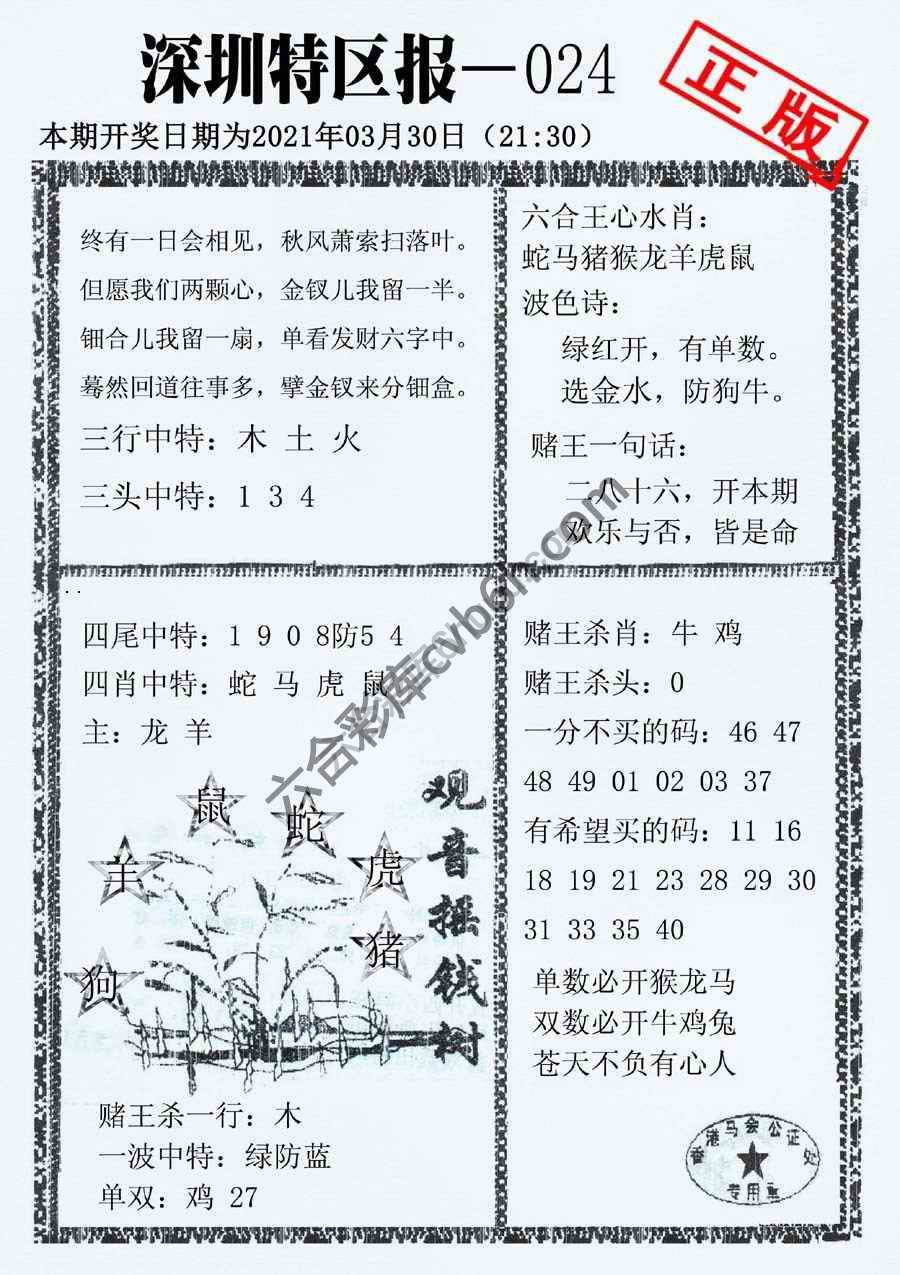 深圳特区报—024
正版
本期开奖日期为2021年03月30日（21:30）
终有一日会相见，秋风萧索扫落叶。
但愿我们两颗心，金钗儿我留一半。
钿合儿我留一扇，单看发财六字中。
蓦然回道往事多，擘金钗来分钿盒。
三行中特：木 土 火
三头中特：1 3 4
六合王心水肖：
蛇马猪猴龙羊虎鼠
波色诗：
绿红开，有单数。
选金水，防狗牛。
赌王一句话：
二八十六，开本期
欢乐与否，皆是命
四尾中特：1 9 0 8防5 4
四肖中特：蛇 马 虎 鼠
主：龙 羊
鼠
蛇
羊
虎
猪
狗
观音摇钱树
赌王杀一行：木
一波中特：绿防蓝
单双：鸡 27
赌王杀肖：牛 鸡
赌王杀头：0
一分不买的码：46 47
48 49 01 02 03 37
有希望买的码：11 16
18 19 21 23 28 29 30
31 33 35 40
单数必开猴龙马
双数必开牛鸡兔
苍天不负有心人
香港马会公证处
专用章
六合彩库cvb6h.com